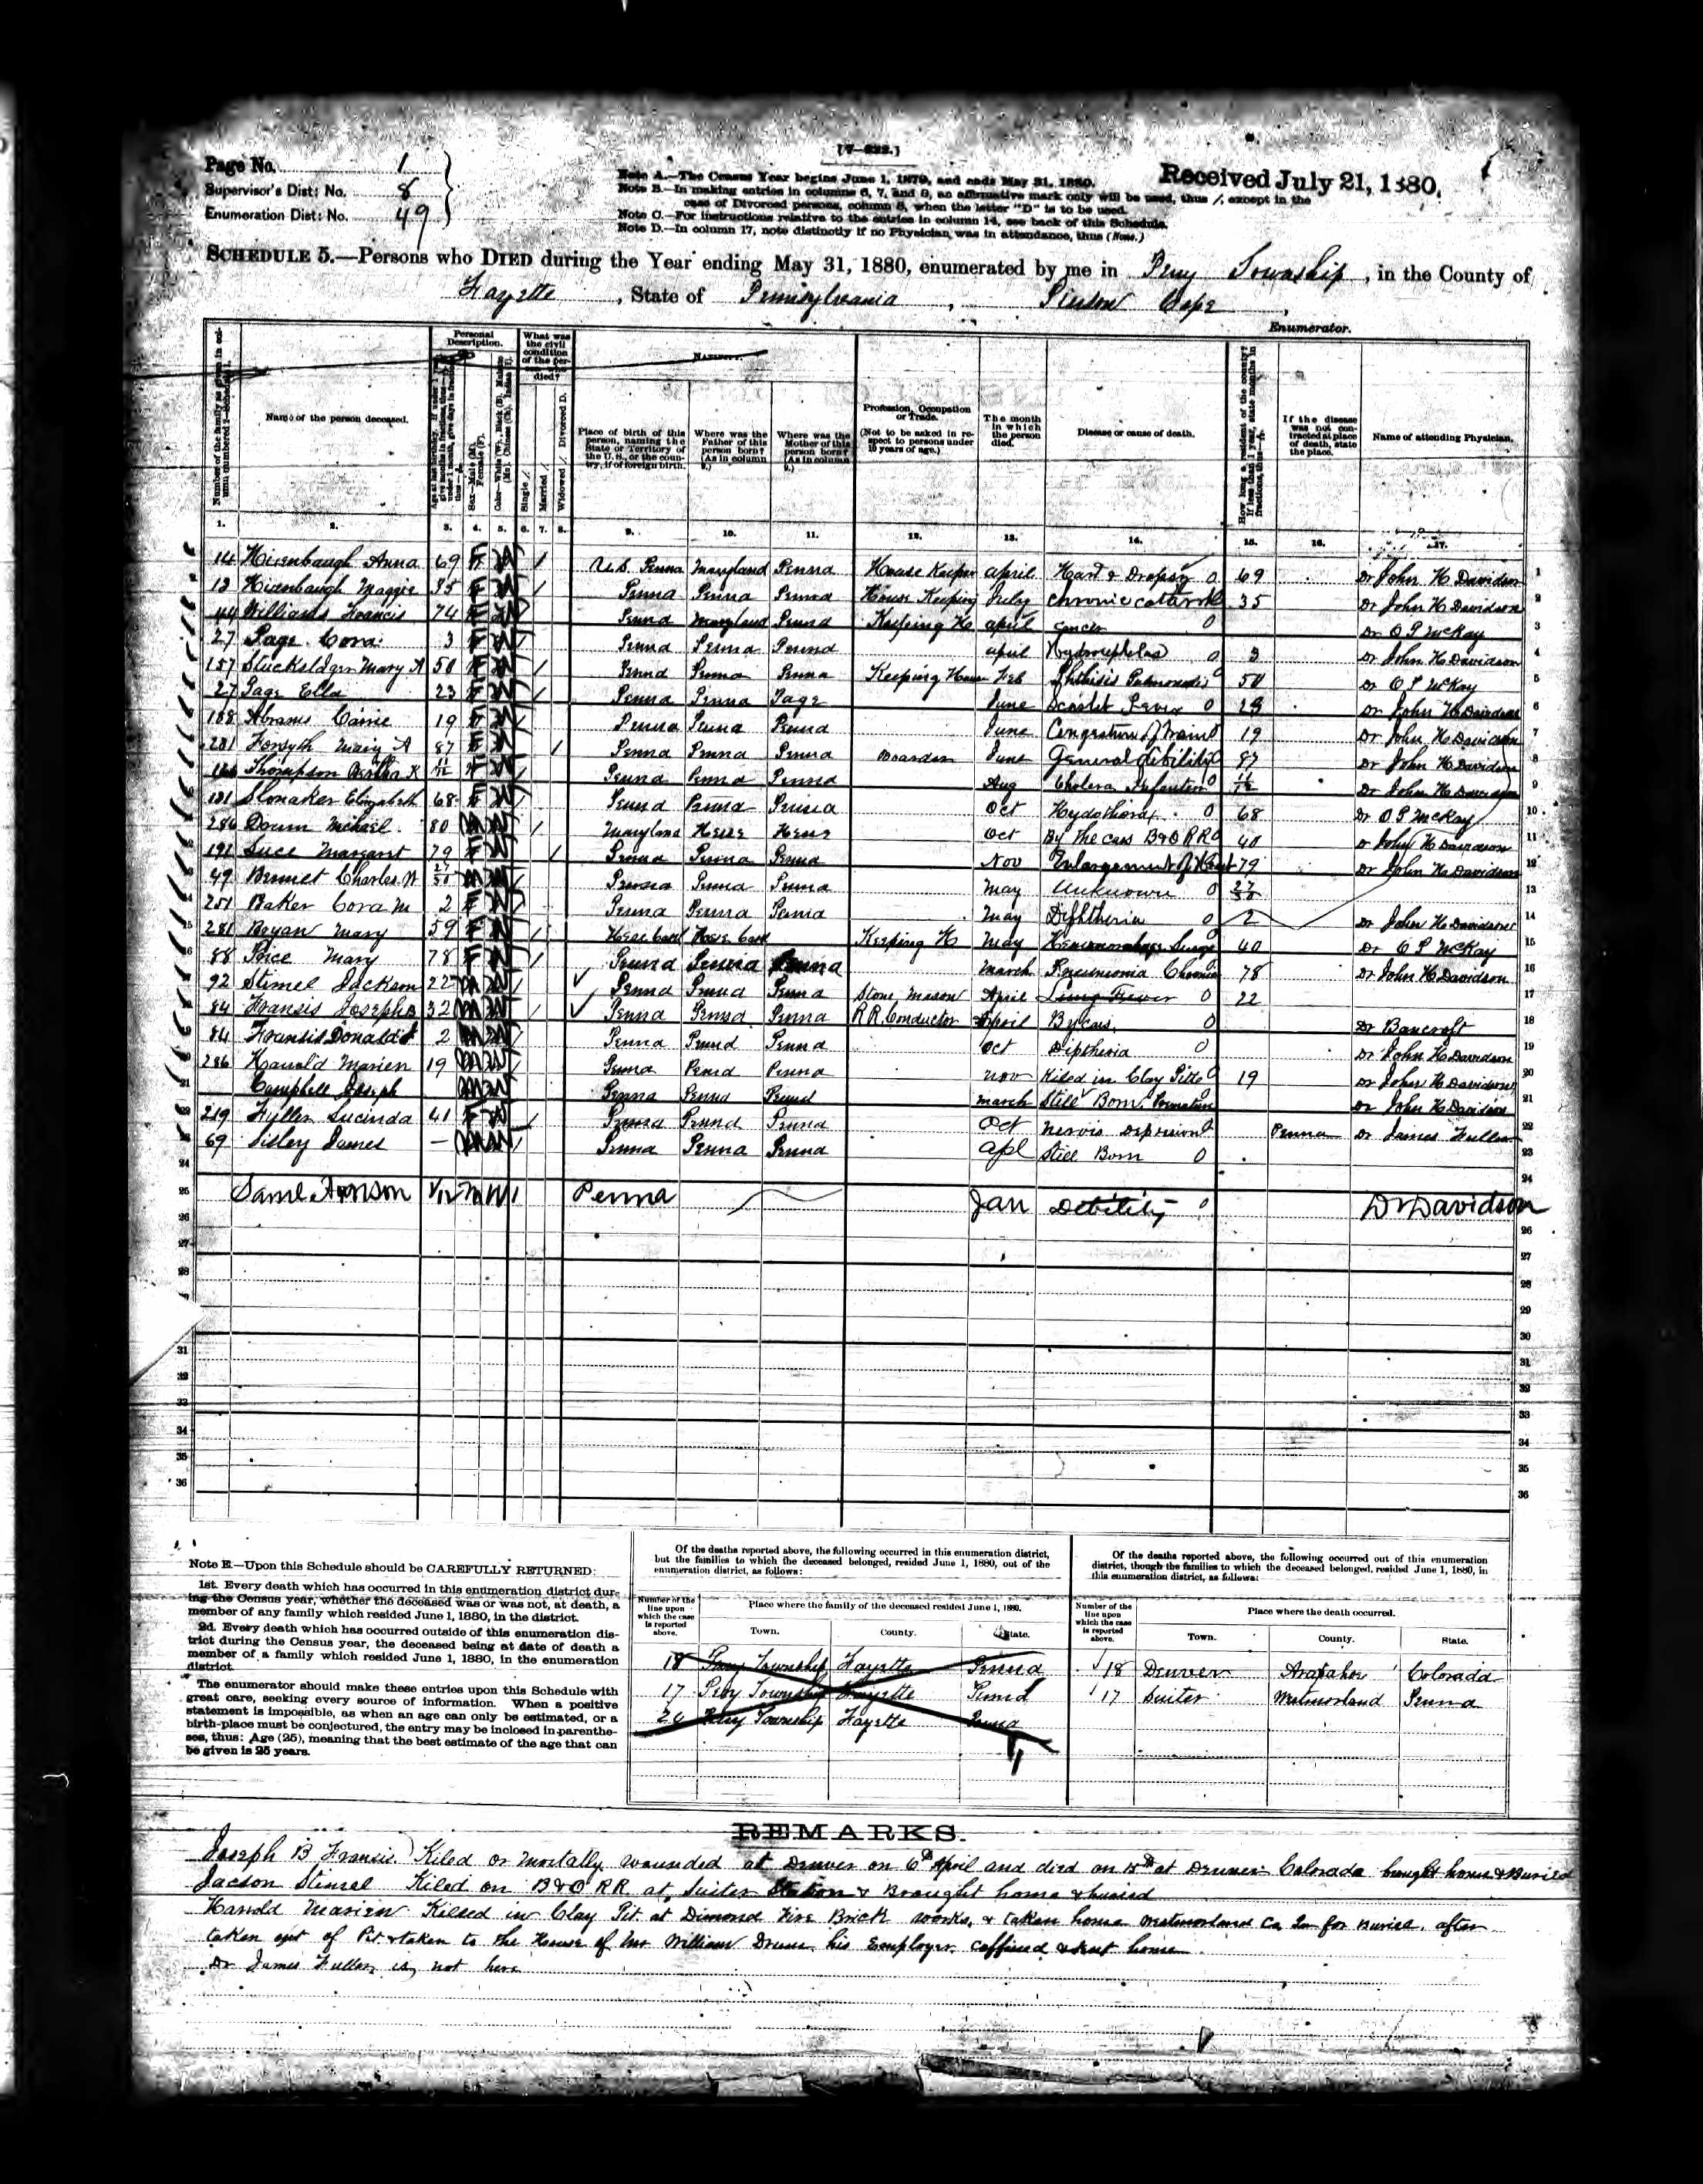 [7-322.]
Page No. 1
Supervisor's Dist: No. 8
Enumeration Dist: No. 49
Received July 21, 1880.
Note A.—The Census Year begins June 1, 1879, and ends May 31, 1880.
Note B.—In making entries in columns 6, 7, and 8, an affirmative mark only will be used, thus /, except in the
case of Divorced persons, column 8, when the letter "D" is to be used.
Note C.—For instructions relative to the entries in column 14, see back of this Schedule.
Note D.—In column 17, note distinctly if no Physician was in attendance, thus (None.)
SCHEDULE 5.—Persons who DIED during the Year ending May 31, 1880, enumerated by me in Perry Township, in the County of
Fayette, State of Pennsylvania,
Enumerator.
Personal Description. What was the civil condition of the person who died? Nativity.
Name of the person deceased.
Single / Married / Widowed / Divorced D.
Place of birth of this person, naming the State or Territory of the U. S., or the country, if of foreign birth.
Where was the Father of this person born? (As in column 9.)
Where was the Mother of this person born? (As in column 9.)
Profession, Occupation or Trade. (Not to be asked in respect to persons under 10 years of age.)
The month in which the person died.
Disease or cause of death.
How long a resident of the county? If less than 1 year, state months in fractions, thus—
If the disease was not contracted at place of death, state the place.
Name of attending Physician.
1. 2. 3. 4. 5. 6. 7. 8. 9. 10. 11. 12. 13. 14. 15. 16. 17.
14 Anna 69 F W / U.S. Penna Maryland Penna House Keeper april Heart & Dropsy 0 69 Dr John H Davidson 1
Maggie 35 F W / Penna Penna Penna House Keeping July chronic catarrh 35 Dr John H Davidson 2
44 Williams Francis 74 F W Penna Maryland Penna Keeping H april cancer 0 Dr O P McKay 3
27 Page Cora 3 F W / Penna Penna Penna april 0 3 Dr John H Davidson 4
157 Mary A 50 F W / Penna Penna Penna Keeping House Feb Phthisis Pulmonalis 0 50 Dr O P McKay 5
27 Page Ella 23 F W / Penna Penna Page June Scarlet Fever 0 23 Dr John H Davidson 6
188 Abrams Carrie 19 F W / Penna Penna Penna June Congestion of brain 0 19 Dr John H Davidson 7
281 Forsyth Mary A 87 F W / Penna Penna Penna Boarder June General debility 0 87 Dr John H Davidson 8
Thompson Bertha K 11/12 F W / Penna Penna Penna Aug Cholera Infantum 0 11/12 Dr John H Davidson 9
181 Slonaker Elizabeth 68 F W / Penna Penna Penna Oct 0 68 Dr O P McKay 10
286 Drum Michael 80 M W / Maryland Hesse Hesse Oct By the cars B&O RR 0 40 Dr John H Davidson 11
191 Luce Margaret 79 F W / Penna Penna Penna Nov Enlargement of Heart 79 Dr John H Davidson 12
49 Charles W M W / Penna Penna Penna May Unknown 0 13
251 Baker Cora M 2 F W / Penna Penna Penna May Diphtheria 0 2 Dr John H Davidson 14
281 Bryan Mary 59 F W / Hesse Casel Hesse Casel Keeping H May 0 40 Dr O P McKay 15
88 Price Mary 78 F W / Penna Penna Penna March Pneumonia Chronic 78 Dr John H Davidson 16
92 Stimel Jackson 22 M W / Penna Penna Penna Stone Mason April Lung Fever 0 22 17
84 Fransis Joseph B 32 M W / Penna Penna Penna RR Conductor April By cars 0 Dr Bancroft 18
84 Fransis Donald 2 M W / Penna Penna Penna Oct Diptheria 0 Dr John H Davidson 19
286 Harold Marien 19 M W / Penna Penna Penna Nov Kiled in Clay Pitts 0 19 Dr John H Davidson 20
Campbell Joseph M W / Penna Penna Penna March Still Born Dr John H Davidson 21
219 Fuller Lucinda 41 F W / Penna Penna Penna Oct Nervis Depresion 0 Penna Dr James Fuller 22
69 Sisley James — M W / Penna Penna Penna Apl Still Born 0 23
24 24
25 Saml Aronson 1/12 M W / Penna Jan Debility 0 Dr Davidson
26 26
27 27
28 28
29 29
30
31 31
32 32
33 33
34 34
35 35
36 36
Note E.—Upon this Schedule should be CAREFULLY RETURNED:
1st. Every death which has occurred in this enumeration district during the Census year, whether the deceased was or was not, at death, a member of any family which resided June 1, 1880, in the district.
2d. Every death which has occurred outside of this enumeration district during the Census year, the deceased being at date of death a member of a family which resided June 1, 1880, in the enumeration district.
The enumerator should make these entries upon this Schedule with great care, seeking every source of information. When a positive statement is impossible, as when an age can only be estimated, or a birth-place must be conjectured, the entry may be inclosed in parentheses, thus: Age (25), meaning that the best estimate of the age that can be given is 25 years.
Of the deaths reported above, the following occurred in this enumeration district, but the families to which the deceased belonged, resided June 1, 1880, out of the enumeration district, as follows:
Number of the line upon which the case is reported above. Place where the family of the deceased resided June 1, 1880.
Town. County. State.
18 Perry Township Fayette Penna
17 Perry Township Fayette Penna
20 Perry Township Fayette Penna
Of the deaths reported above, the following occurred out of this enumeration district, though the families to which the deceased belonged, resided June 1, 1880, in this enumeration district, as follows:
Number of the line upon which the case is reported above. Place where the death occurred.
Town. County. State.
18 Denver Arapahoe Colorada
17 Suiter Westmorland Penna
REMARKS.
Joseph B Francis Kiled or mortally wounded at Denver on 6th April and died on at Denver Colorada brought home & Buried
Jacson Stimel Kiled on B&O RR at Suiter Station & Brought home & buried
Harold Marien Killed in Clay Pit at Dimond Fire Brick works, & taken home Westmorland Co for Buriel, after
taken out of Pit & taken to the House of Mr William Drum his Employer coffined & sent home
Dr James Fuller is not here